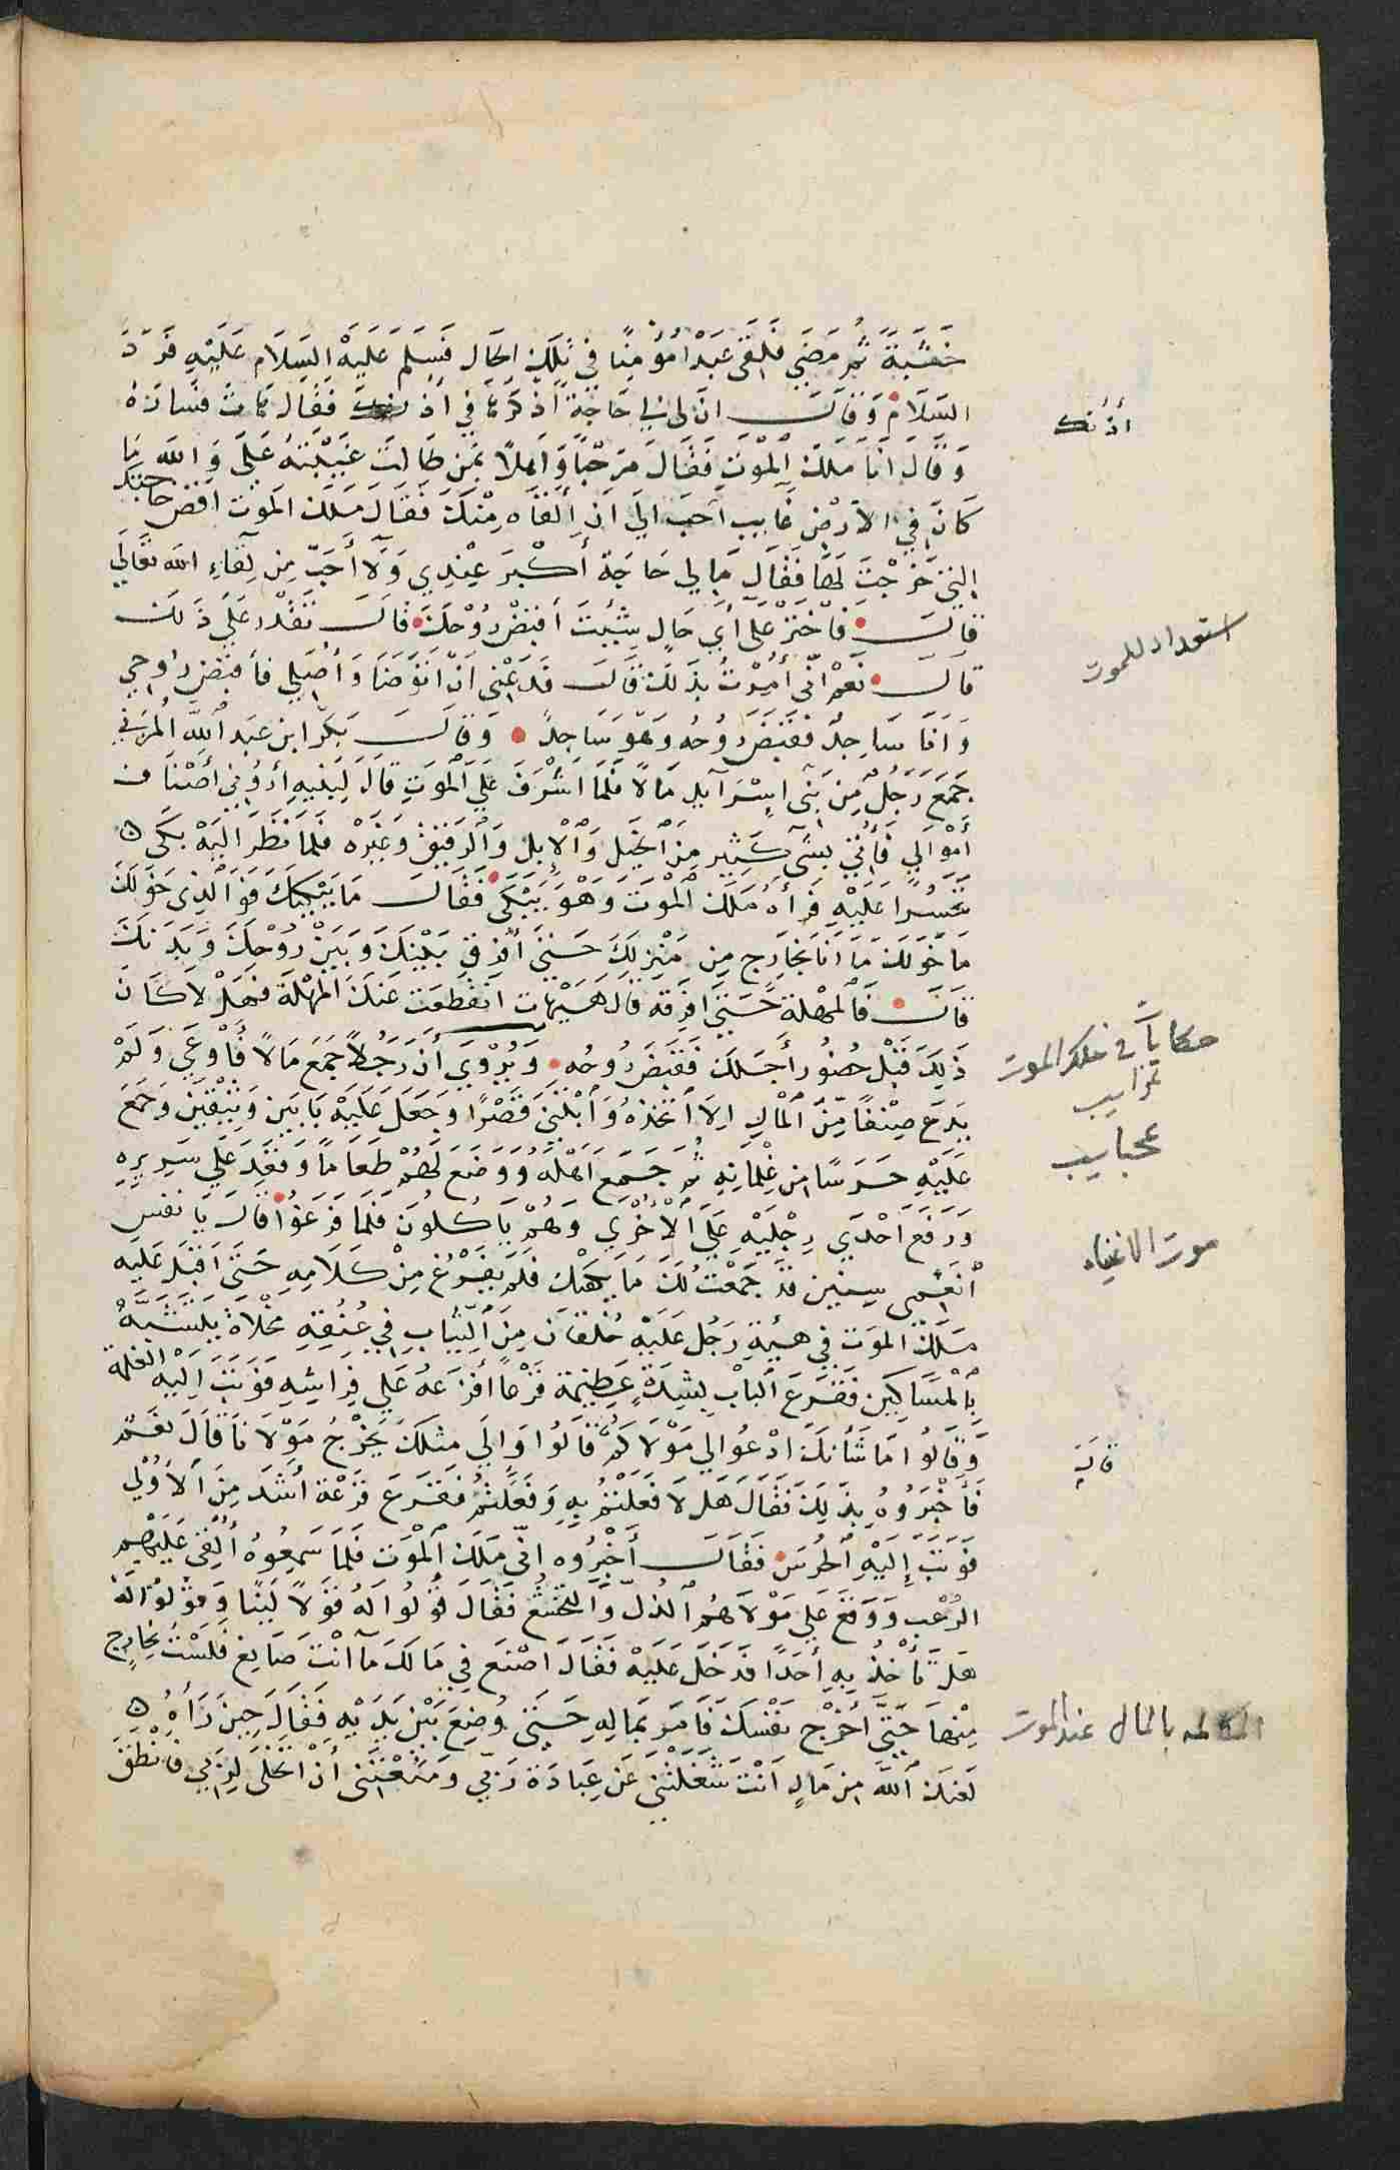 خَشَبَةً ثُمَّ مَضَى فَلَقَى عَبْدًا مُؤْمِنًا فِي تِلْكَ الحَالِ فَسَلَّمَ عَلَيْهِ السَّلَام عَلَيْهِ فَرَدَّ
السَّلَامَ وَقَالَ انّ لِي اليكَ حَاجَةً اَذكُرُهَا فِي اُذُنِكَ فَقَالَ هَاتْ فَسَارَّهُ
أُذُنك
وَقَالَ اَنَا مَلَكُ الْمَوْتِ فَقَالَ مَرْحَبًا وَاَهلًا بِمَن طَالَتْ غَيْبَتُهُ عَلَيَّ وَاللهِ مَا
كَانَ فِي الاَرْضِ غَايِب اَحَبّ اِلَيَّ اَن اَلْقَاه مِنْكَ فَقَالَ مَلَكُ المَوْت اقضِ حَاجَتَكَ
الَّتِي خَرَجْتَ لَهَا فَقَالَ مَا لِي حَاجَة أَكْبَرَ عِنْدِي وَلَا أَحَبَّ مِن لِقَاءِ الله تَعَالَى
قَالَ فَاخْتَرْ عَلَى أَيِّ حَالٍ شِئْتَ أَقبِضُ رُوْحَكَ قَالَ تَقْدِر عَلَى ذَلِكَ
استعداد للموت
قَالَ نَعَمْ اِنِّي أُمِرْتُ بِذَلِكَ قَالَ فَدَعْنِي اَن اَتَوَضَّا وَأُصَلِّي فَأَقبِض رُوحِي
وَاَنَا سَاجِدٌ فَقَبَضَ رُوْحُه وَهُوَ سَاجِدٌ وَقَالَ بَكر ابن عَبد اللهِ المُزَنِي
جَمَعَ رَجُلٌ مِنْ بَنِي اِسْرَآئِل مَالًا فَلَمَّا اَشْرَفَ عَلَى المَوْتِ قَالَ لِبَنِيهِ أَرُوْنِي أَصْنَاف
أَمْوَالِي فَأُتِيَ بِشَيءٍ كَثِيرٍ مِنَ الخَيْلِ وَالْاِبِلِ وَالرَقِيْقِ وَغَيْرِه فَلَمَّا نَظَرَ اِلَيْهِ بَكَى
تَحَسُّرًا عَلَيْهِ فَرَأهُ مَلَكُ الْمَوْتِ وَهُوَ يَبْكِي فَقَالَ مَا يُبْكِيكَ فَوَ الَّذِي خَوَّلَكَ
مَا خَوَّلَكَ مَا اَنَا بِخَارِج مِن مَنْزِلِكَ حَتَّى أُفَرِّق بَيْنَكَ وَبَيْنَ رُوْحِكَ وَبَدَنِكَ
قَالَ فَالْمُهْلَة حَتَّى اُفَرِّقه قَالَ هَيْهَاتَ انْقَطَعَتْ عَنْكَ المُهْلَة فَهَلَّا كَانَ
ذَلِكَ قَبْلَ حُضُورِ أَجَلِكَ فَقَبَضَ رُوحُه وَيُرْوَي أَن رَجُلاً جَمَعَ مَالًا فَأَوْعَى وَلَمْ
حكايآت في ملك الموت
غرايب
يَدَع صِنْفًا مِنَ المَالِ اِلَّا اتَّخَذَهُ وَابْتَنَى قَصْرًا وَجَعَلَ عَلَيْهِ بَابَيْنِ وَثِيْقَيْنِ وَجَمَعَ
عجايب
عَلَيْهِ حَرَسًا مِن غِلْمَانِهِ ثُمَّ جَمَعَ اَهْلَهُ وَوَضَعَ لَهُمْ طَعَامًا وَقَعَدَ عَلَى سَرِيرِهِ
وَرَفَعَ اَحْدَي رِجْلَيْهِ عَلَى الْاُخْرَي وَهُمْ يَأكُلُونَ فَلَمَّا فَرَغُوا قَالَ يَا نَفْس
موت الاغنياء
اَنْعِمِي سِنِيْن قَدْ جَمَعْتُ لَكَ مَا يَكفيك فَلَمْ يَفْرُغ مِنْ كَلَامِهِ حَتَّى اَقْبَلَ عَلَيه
مَلَكُ المَوْت فِي هيئَةِ رَجُلٍ عَلَيْهِ خُلْقَان مِنَ الثِّيَابِ فِي عُنُقِهِ مِخْلَاة يَتَشَبَّهُ
بِالْمَسَاكِينِ فَقَرَعَ البَابَ بِشِدَّةٍ عَظِيمَة قَرْعًا أَفْزَعَهُ عَلَى فِرَاشِهِ فَوَثَبَ اِلَيْهِ الغلمة
وَقَالُوا مَا شَأنكَ ادْعُوا لِي مَوْلَاكُمْ فَقَالُوا وَاِلَى مِثْلِكَ يَخْرُجُ مَوْلَانَا قَالَ نَعَمْ
قالَ
فَأَخْبَرُوهُ بِذَلِكَ فَقَالَ هَلَّا فَعَلْتُم بِهِ وَفَعَلْتُمْ فَقَرَعَ قَرْعَة أَشَدَّ مِنَ الْأُوْلَى
فَوَثَبَ إِلَيْهِ الحُرَّس فَقَالَ أَخْبِرُوه اِنِّي مَلَكُ المَوْت فَلَمَّا سَمِعُوهُ أُلْقِيَ عَلَيْهِمُ
الرُعْب وَوَقَعَ عَلَى مَوْلَاهُمُ الذُلّ وَالتَّخَشُّع فَقَالَ قُولُوا لَهُ قَوْلًا لَيِّنًا وَقُوْلُوْا لَهُ
هَلْ تَأْخُذُ بِهِ أَحَدًا فَدَخَلَ عَلَيْهِ فَقَالَ اصْنَع فِي مَالِكَ مَآ اَنْتَ صَانِع فَلَسْتُ بِخَارِج
مِنْهَا حَتَّى أُخْرِج نَفْسَكَ فَأَمَرَ بِمَالِهِ حَتَّى وُضِعَ بَيْنَ يَدَيْهِ فَقَالَ حِيْنَ رَأهُ
بالمال عند الموت
لَعَنَكَ اللهُ مِن مَالٍ اَنْتَ شَغَلْتَنِي عَن عِبَادَةِ رَبِّي وَمَنَعْتَنِي أَنْ اَتَخَلَّى لِرَبِّي فَانْطَقَ